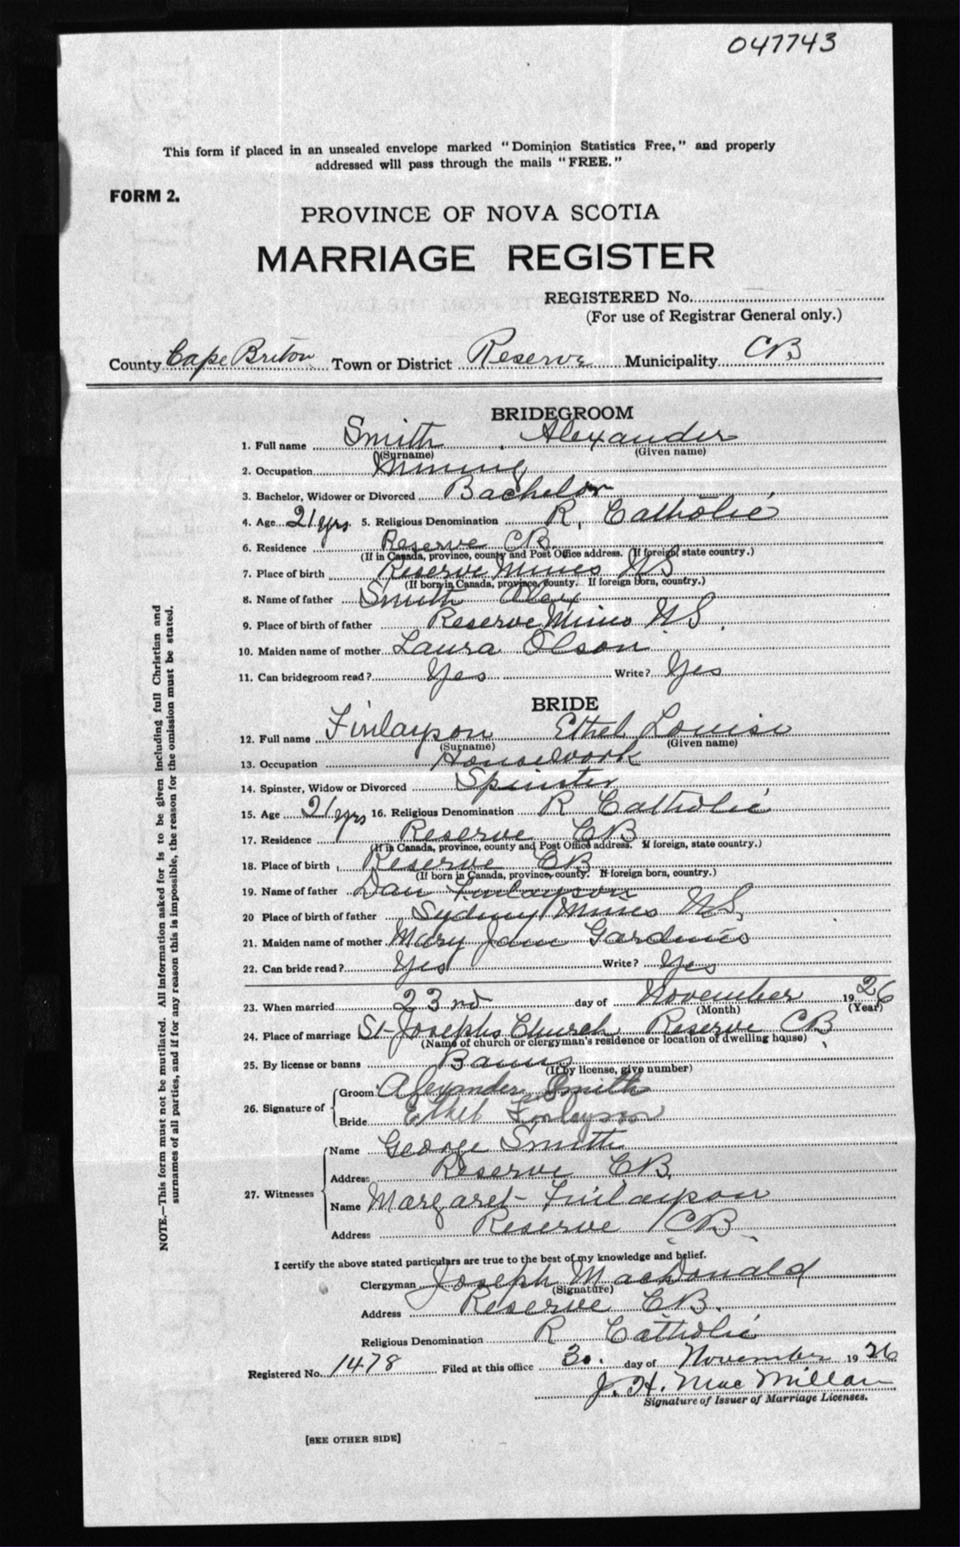 047743
This form if placed in an unsealed envelope marked "Dominion Statistics Free," and properly
addressed will pass through the mails "FREE."
FORM 2.
PROVINCE OF NOVA SCOTIA
MARRIAGE REGISTER
REGISTERED No.
(For use of Registrar General only.)
County Cape Briton Town or District Reserve Municipality CB
BRIDEGROOM
1. Full name Smith, Alexander
(Surname) (Given name)
2. Occupation Mining
3. Bachelor, Widower or Divorced Bachelor
4. Age 21 yrs 5. Religious Denomination R. Catholic
6. Residence Reserve CB.
(If in Canada, province, county and Post Office address. If foreign, state country.)
7. Place of birth Reserve Mines
(If born in Canada, province, county. If foreign born, country.)
8. Name of father Smith Alex
9. Place of birth of father Reserve Mines N.S.
10. Maiden name of mother Laura Olson
11. Can bridegroom read? Yes Write? Yes
BRIDE
12. Full name Finlayson Ethel Louise
(Surname) (Given name)
13. Occupation Housework
14. Spinster, Widow or Divorced Spinster
15. Age 21 yrs 16. Religious Denomination R Catholic
17. Residence Reserve CB
(If in Canada, province, county and Post Office address. If foreign, state country.)
18. Place of birth Reserve CB
(If born in Canada, province, county. If foreign born, country.)
19. Name of father Dan Finlayson
20 Place of birth of father Sydney Mines N.S.
21. Maiden name of mother Mary Jane
22. Can bride read? Yes Write? Yes
23. When married 23nd day of November 1926
(Month) (Year)
24. Place of marriage St Josephs Church Reserve CB
(Name of church or clergyman's residence or location of dwelling house)
25. By license or banns Banns
(If by license, give number)
26. Signature of Groom Alexander Smith
Bride Ethel Finlayson
27. Witnesses Name George Smith
Address Reserve CB.
Name Margaret Finlayson
Address Reserve CB.
I certify the above stated particulars are true to the best of my knowledge and belief.
Clergyman Joseph MacDonald
(Signature)
Address Reserve CB.
Religious Denomination R Catholic
Registered No. 1478 Filed at this office 30. day of November 1926
J. H. MacMillan
Signature of Issuer of Marriage Licenses.
[SEE OTHER SIDE]
NOTE.—This form must not be mutilated. All information asked for is to be given including full Christian and
surnames of all parties, and if for any reason this is impossible, the reason for the omission must be stated.